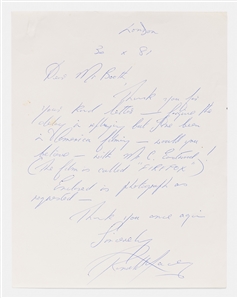 London
30 11 81
Dear Mr Booth
Thank you for
your kind letter — forgive the
delay in replying but I've been
in Vienna filming — would you
believe — with Mr C. Eastwood!
(the film is called 'FIREFOX')
Enclosed is photograph as
requested —
Thank you once again
Sincerely